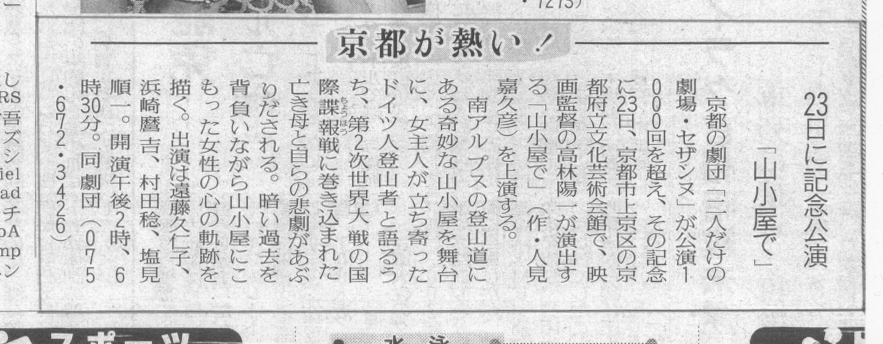 ・1213）
京都が熱い！
23日に記念公演
「山小屋で」
京都の劇団「二人だけの
劇場・セザンヌ」が公演1
000回を超え、その記念
に23日、京都市上京区の京
都府立文化芸術会館で、映
画監督の高林陽一が演出す
る「山小屋で」（作・人見
嘉久彦）を上演する。
南アルプスの登山道に
ある奇妙な山小屋を舞台
に、女主人が立ち寄った
ドイツ人登山者と語るう
ち、第2次世界大戦の国
際諜報戦に巻き込まれた
亡き母と自らの悲劇があぶ
りだされる。暗い過去を
背負いながら山小屋にこ
もった女性の心の軌跡を
描く。出演は遠藤久仁子、
浜崎麿吉、村田稔、塩見
順一。開演午後2時、6
時30分。同劇団（075
・672・3426）
スポーツ
水泳